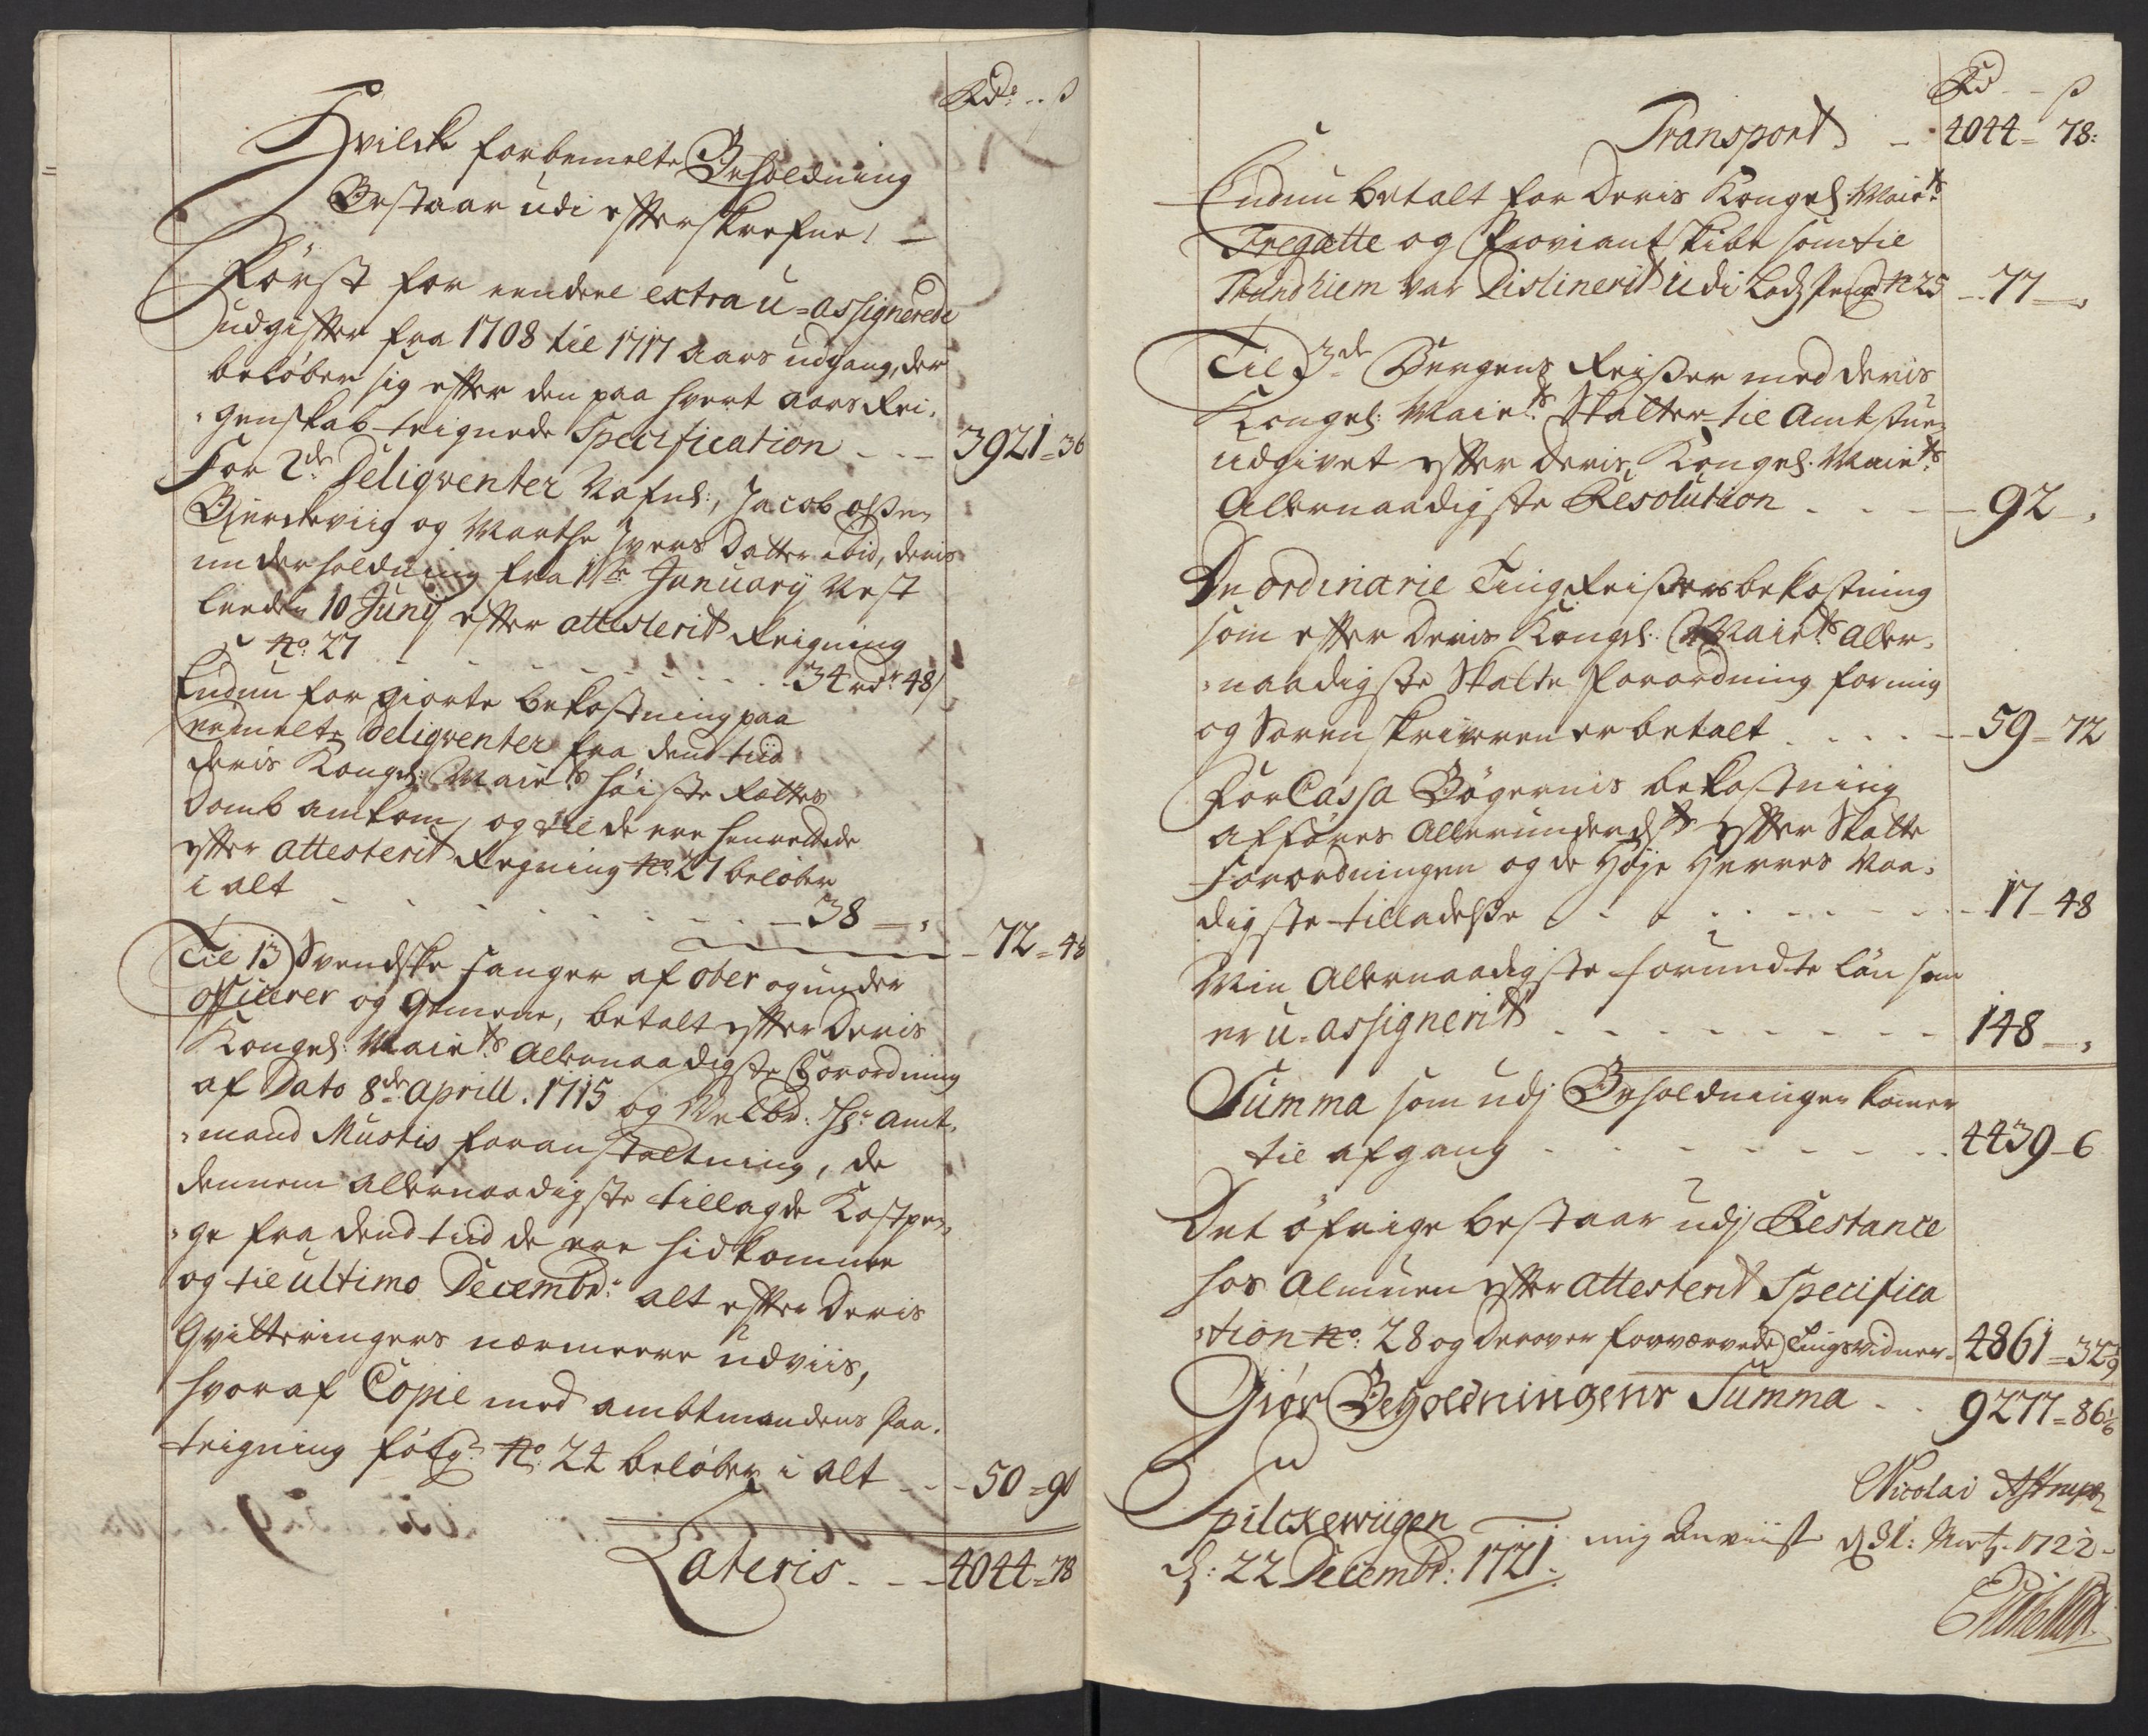 Rd: .. ß
Hvilche forbemelte Beholdning
Bestaar udi efterskrefne!
Först for eendeel extra u-assignerede
udgifter fra 1708 til 1717 aars udgang, der
beløber sig efter den paa hvert aars Rei-
genskab teignede Specification - - - 3921 = 36
For 2de Deliqventer Nafnl:, Jacob olßen
Bjerckeviig og Marthe Ivers Datter ibid, deris
underholdning fra 1ste January Nest
leeden 10 Junij efter attesterit Reigning
No: 27 - - - - - - 34 rdr 48/
Endnu for giorte bekostning paa
bemelte Deliqventer fra dend tiid
deris Kongel: Maiets höiste Rettes
Domb ankom, og til de ere henrettede
efter attesterit Regning No: 27 beløber
i alt - - - - - - 38 - , - 72 = 48
Til 13 Svendske fanger af ober og under
officerer og Gemene, betalt efter Deris
Kongel: Maiets Allernaadigste Forordning
af Dato 8de Aprill. 1715 og Velbr: Hr: Amt-
mand Mustis foranstaltning, de
dennem allernaadigste tillagde Kostpen-
ge fra dend tiid de ere hidkomne
og til ultimo Decembr: alt efter Deris
Qvitteringers nærmeere udviis,
hvoraf Copie med ambtmandens paa-
teigning fölg: No: 24 beløber i alt - - 50 = 90
Lateris - - - 4044 = 78
Rd - - ß
Transport - 4044 = 78:
Endnu betalt for Deris Kongel: Maiets
Fregatte og Proviant skibe som til
Trundhiem var Distinerit udi Lodspenge No 25 - 77 - ,
Til 3de Bergens Reißer med deris
Kongel: Maiets Skatter til Amtstuen
udgivet efter deris Kongel. Maiets
Allernaadigste Resolution - - - - 92 - ,
De ordinarie Ting Reißers bekostning
som efter Deris Kongel: Maiets Aller-
naadigste Skatte Forordning for mig
og Sorenskriveren er betalt - - - - 59 = 72
For Cassa Bögernis bekostning
afföres Allerunderdst efter Skatte
forordningen og de Höje Herres Naa-
digste tilladelße - - - - 17 - 48
Min Allernaadigste forundte län som
er u-assignerit - - - - - - 148 - ,
Summa som udj Beholdningen komer
til afgang - - - - - - 4439 - 6
Det öfrige bestaar udj Restance
hos Almuen efter attesterit Specifica
tion No: 28 og derover forværvede Tingsvidner - 4861 = 32
Giör Beholdningens Summa - - 9277 = 86
Spilckewiigen
d: 22 Decembr: 1721.
Nicolai Astrup
mig anviist d 31: Mertz. 1722